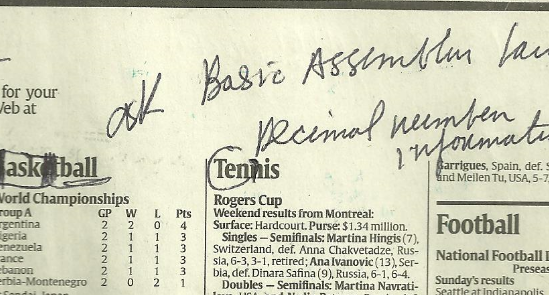 for your
Web at
ask Basic Assembler
Decimal number
Basketball
World Championships
Group A GP W L Pts
Argentina 2 2 0 4
Nigeria 2 1 1 3
Venezuela 2 1 1 3
France 2 1 1 3
Lebanon 2 1 1 3
Serbia-Montenegro 2 0 2 1
Tennis
Rogers Cup
Weekend results from Montreal:
Surface: Hardcourt. Purse: $1.34 million.
Singles — Semifinals: Martina Hingis (7),
Switzerland, def. Anna Chakvetadze, Rus-
sia, 6-3, 3-1, retired; Ana Ivanovic (13), Ser-
bia, def. Dinara Safina (9), Russia, 6-1, 6-4.
Doubles — Semifinals: Martina Navrati-
Garrigues, Spain, def. S
and Mellen Tu, USA, 5-7
Football
National Football L
Preseas
Sunday's results
Seattle at Indianapolis